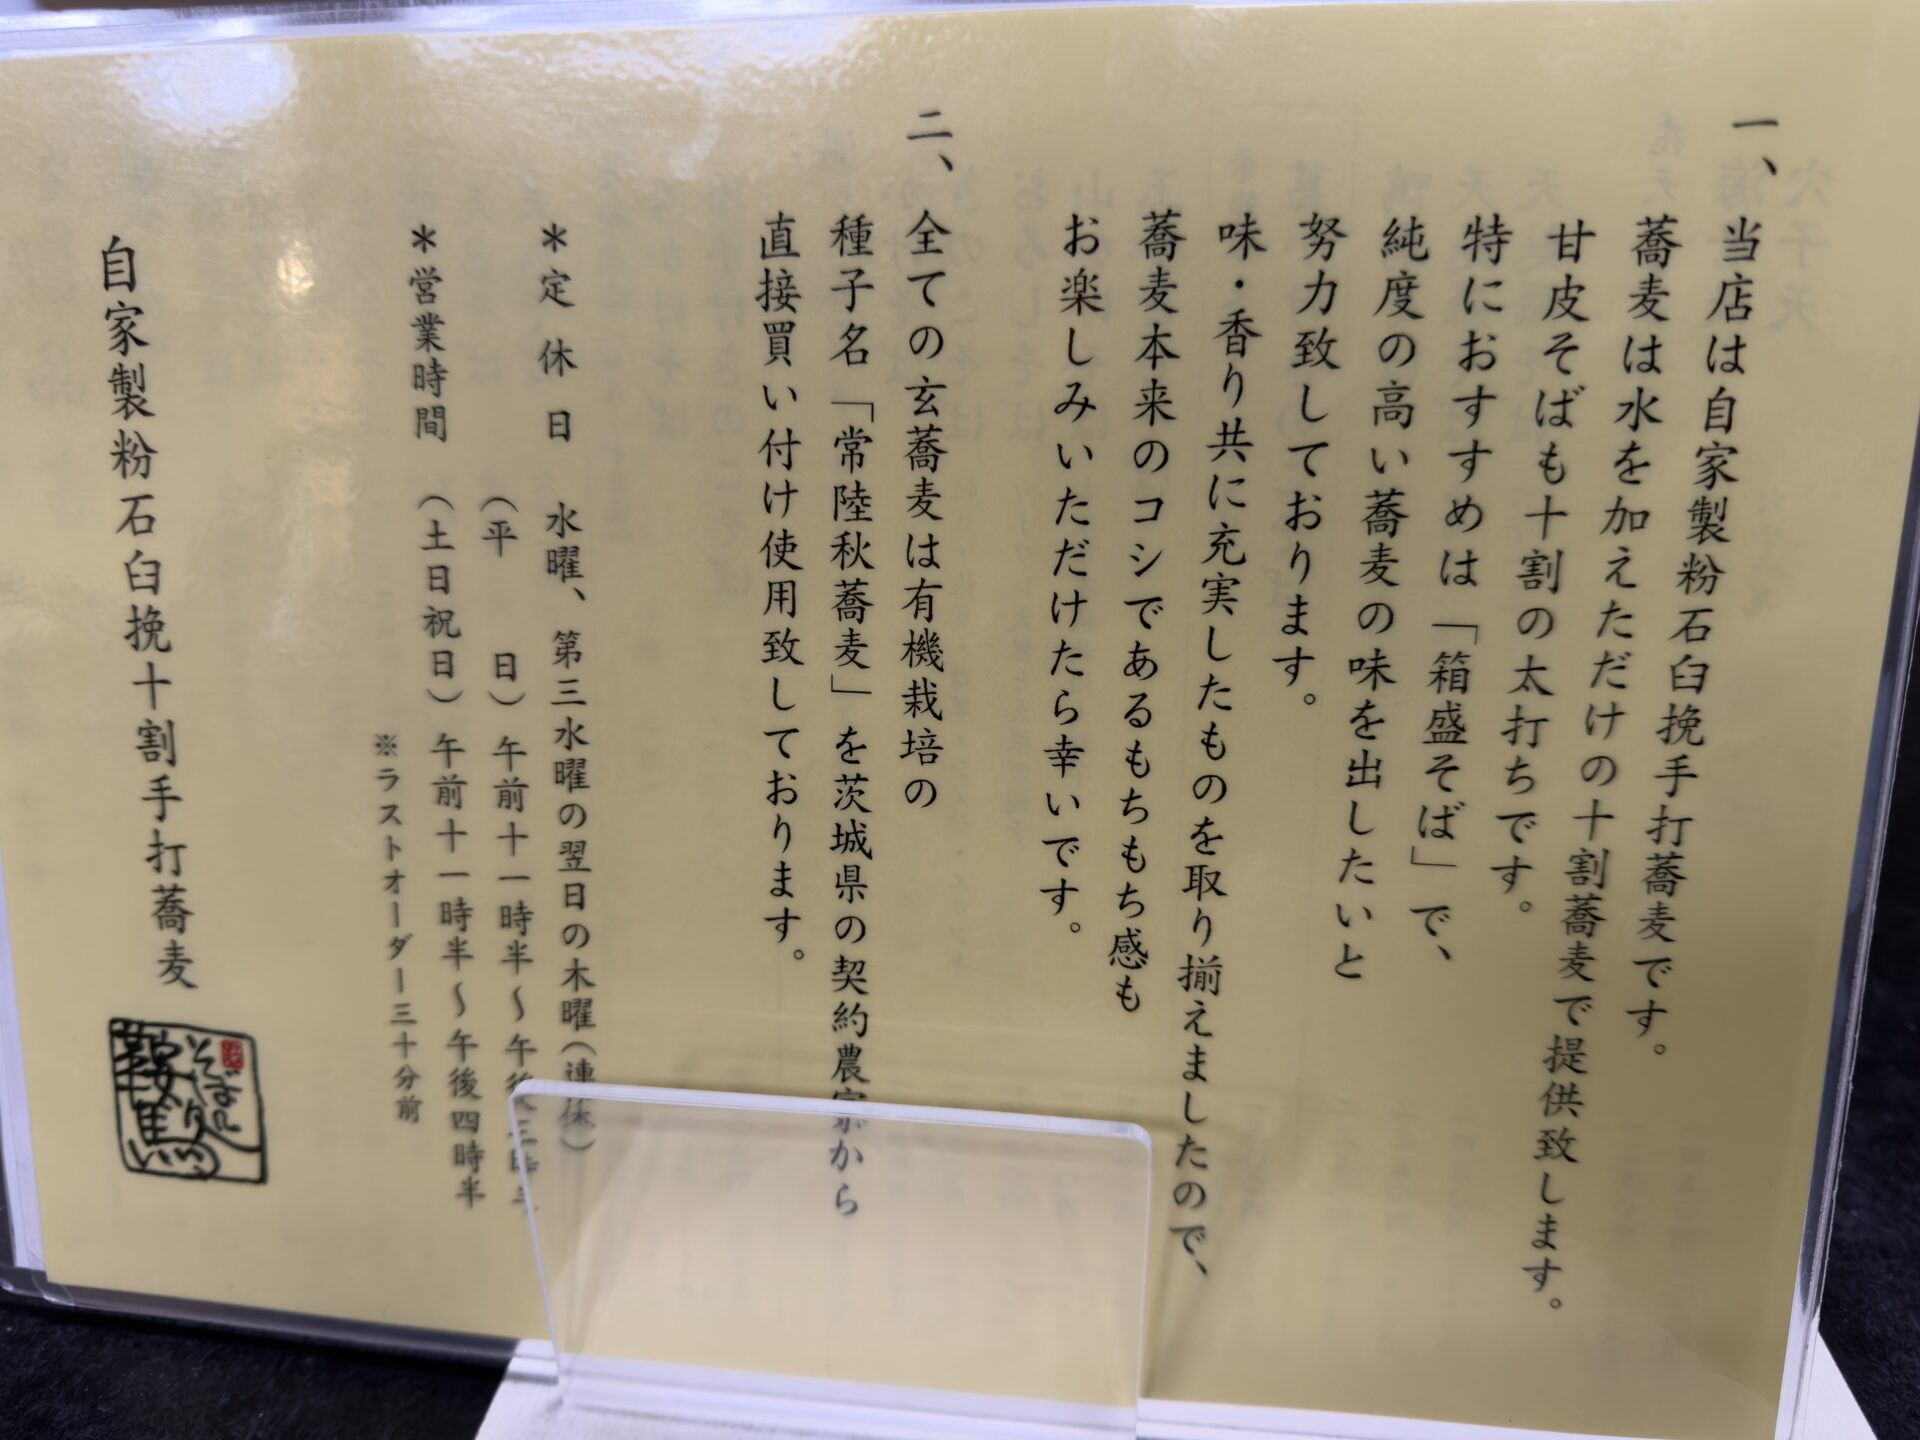 一、 当店は自家製粉石臼挽手打蕎麦です。
蕎麦は水を加えただけの十割蕎麦で提供致します。
甘皮そばも十割の太打ちです。
特におすすめは「箱盛そば」で、
純度の高い蕎麦の味を出したいと
努力致しております。
味・香り共に充実したものを取り揃えましたので、
蕎麦本来のコシであるもちもち感も
お楽しみいただけたら幸いです。
二、 全ての玄蕎麦は有機栽培の
種子名「常陸秋蕎麦」を茨城県の契約農家から
直接買い付け使用致しております。
＊定休日 水曜、第三水曜の翌日の木曜(連休)
(平日) 午前十一時半～午後三時半
＊営業時間 (土日祝日) 午前十一時半～午後四時半
※ラストオーダー三十分前
自家製粉石臼挽十割手打蕎麦